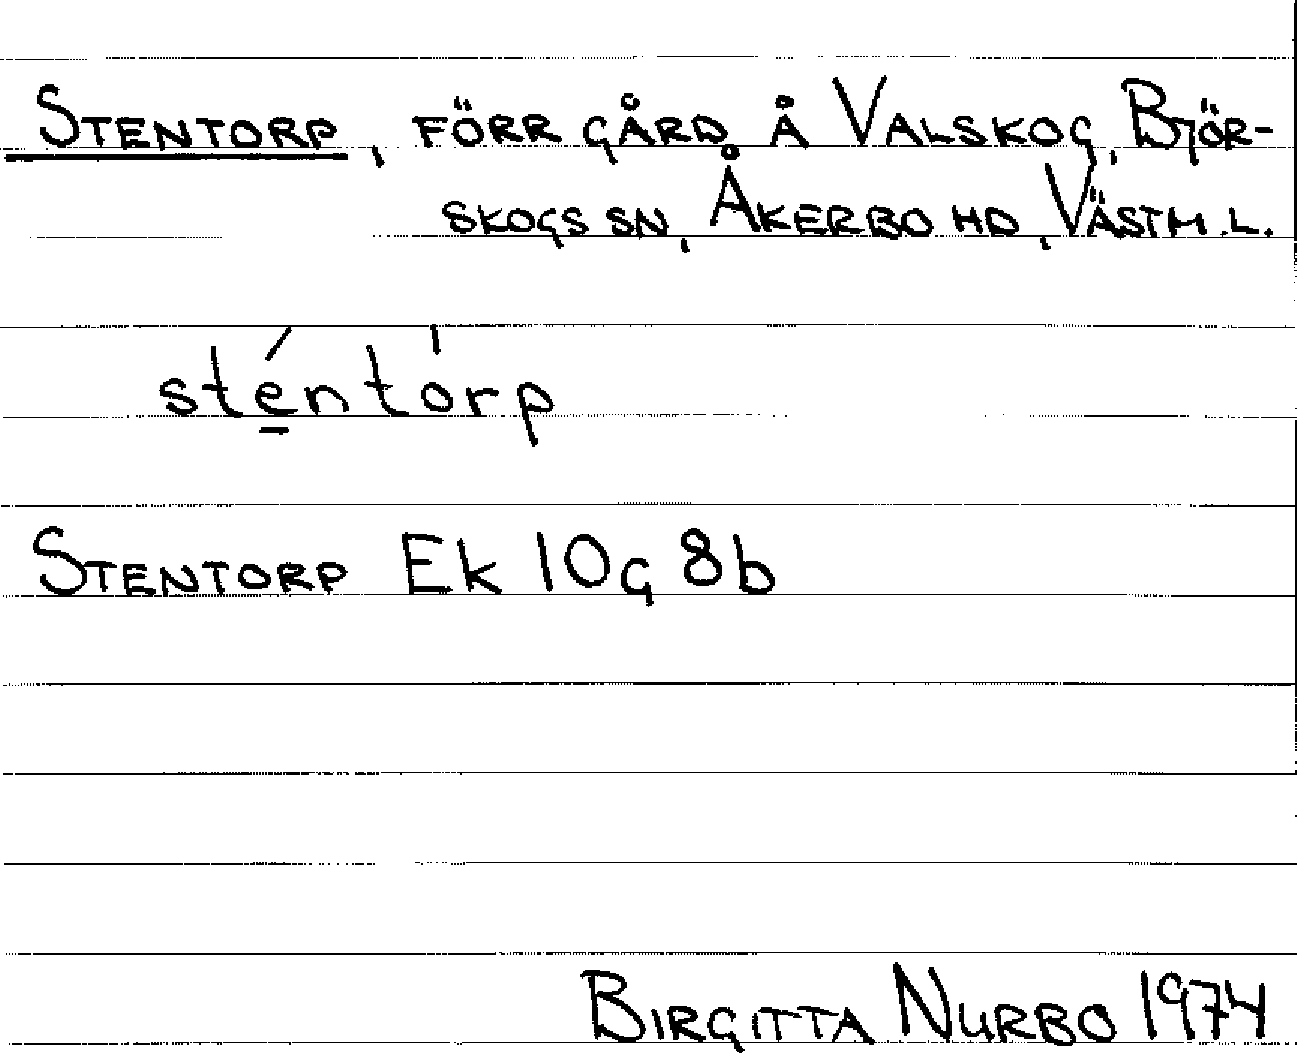 STENTORP, FÖRR GÅRD Å VALSKOG, BJÖR-
SKOGS SN, ÅKERBO HD, VÄSTM.L.
sténtórp
STENTORP Ek 10G 8b
BIRGITTA NURBO 1974